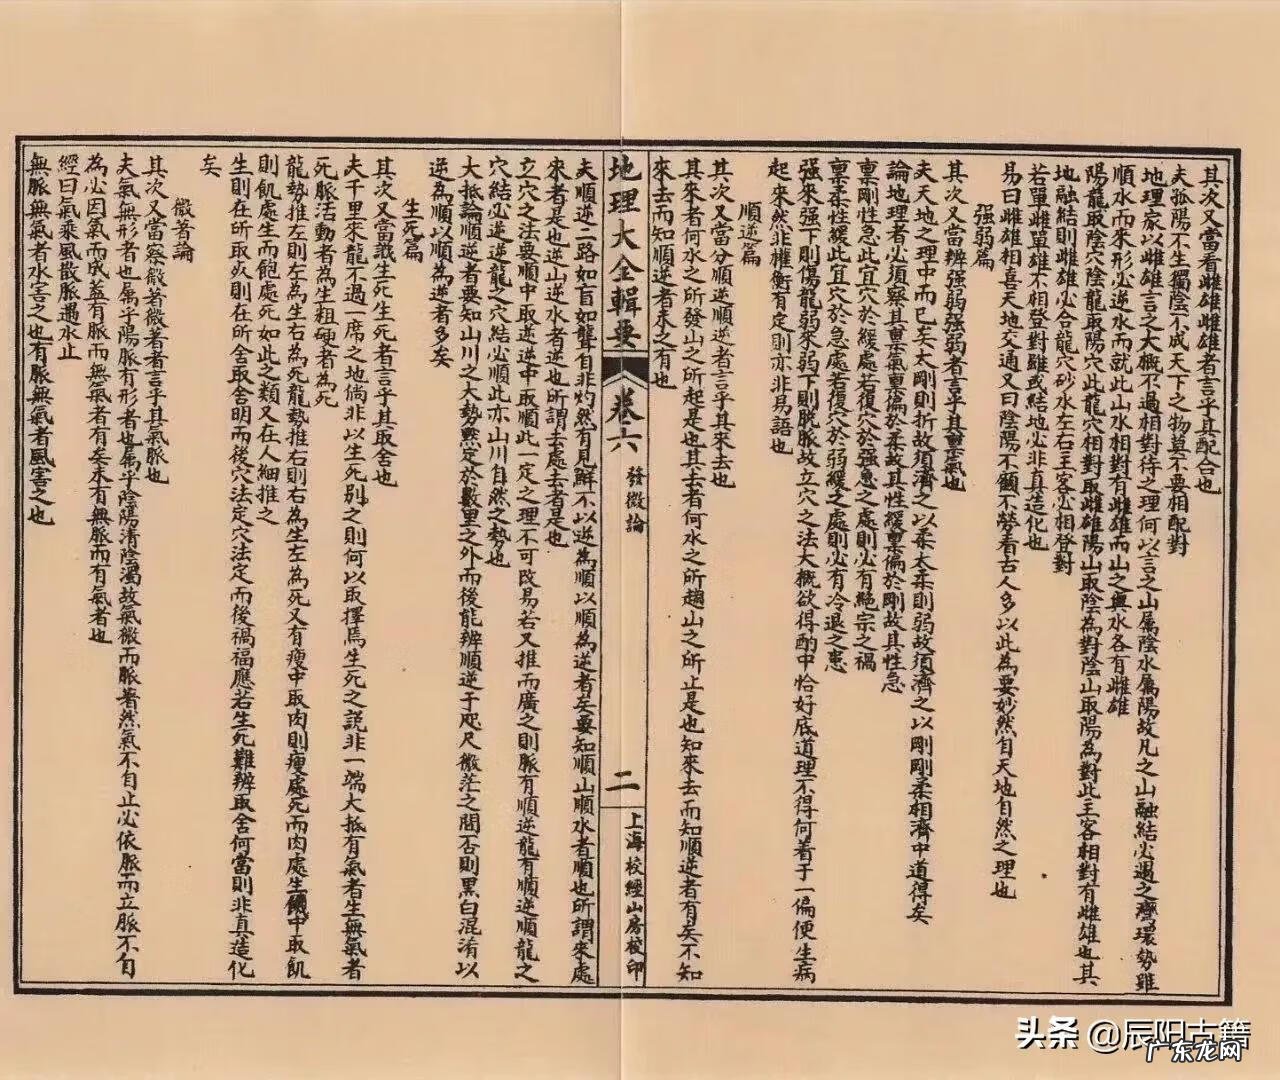 其次又當看雌雄雌雄者言乎其配合也
夫孤陽不生獨陰不成天下之物莫不要相配對
地理家以雌雄言之大概不過相對待之理何以言之山属陰水属陽故凡之山融結必遇之灣環勢雖
順水而來形必逆水而就此山水相對有雌雄而山之與水各有雌雄
陽龍取陰穴陰龍取陽穴此龍穴相對取雌雄陽山取陰為對陰山取陽為對此主客相對有雌雄也其
地融結則雌雄必合龍穴砂水左右主客必相登對
若單雌單雄不相登對雖或結地必非真造化也
易曰雌雄相喜天地交通又曰陰陽不顧不勞看古人多以此為要妙然自天地自然之理也
强弱篇
其次又當辨强弱强弱者言乎其禀氣也
夫天地之理中而已矣太剛則折故須濟之以柔太柔則弱故須濟之以剛剛柔相濟中道得矣
論地理者必須察其禀氣禀偏於柔故其性緩禀偏於剛故其性急
禀剛性急此宜穴於緩處若復穴於强急之處則必有絶宗之禍
禀柔性緩此宜穴於急處若復穴於弱緩之處則必有冷退之患
强來强下則傷龍弱來弱下則脱脈故立穴之法大概欲得酌中恰好底道理不得何着于一偏便生病
起來然非權衡有定則亦非易語也
順逆篇
其次又當分順逆順逆者言乎其來去也
其來者何水之所發山之所起是也其去者何水之所趨山之所止是也知來去而知順逆者有矣不知
來去而知順逆者未之有也
地理大全輯要
卷六
發微論
二
上海校經山房校印
夫順逆二路如盲如聾自非灼然有見鮮不以逆為順以順為逆者矣要知順山順水者順也所謂來處
來者是也逆山逆水者逆也所謂去處去者是也
立穴之法要順中取逆逆中取順此一定之理不可改易若又推而廣之則脈有順逆龍有順逆順龍之
穴結必逆逆龍之穴結必順此亦山川自然之勢也
大抵論順逆者要知山川之大勢默定於數里之外而後能辨順逆于咫尺微茫之間否則黑白混淆以
逆為順以順為逆者多矣
生死篇
其次又當識生死生死者言乎其取舍也
夫千里來龍不過一席之地倘非以生死别之則何以取擇焉生死之説非一端大抵有氣者生無氣者
死脈活動者為生粗硬者為死
龍勢推左則左為生右為死龍勢推右則右為生左為死又有瘦中取肉則瘦處死而肉處生饑中取飢
則飢處生而飽處死如此之類又在人細推之
生則在所取死則在所舍取舍明而後穴法定穴法定而後禍福應若生死難辨取舍何當則非真造化
矣
微著論
其次又當察微著微著者言乎其氣脈也
夫氣無形者也属乎陽脈有形者也属乎陰陽清陰濁故氣微而脈著然氣不自止必依脈而立脈不自
為必因氣而成蓋有脈而無氣者有矣未有無脈而有氣者也
經曰氣乘風散脈遇水止
無脈無氣者水害之也有脈無氣者風害之也
头条 @辰阳古籍
广东龙网